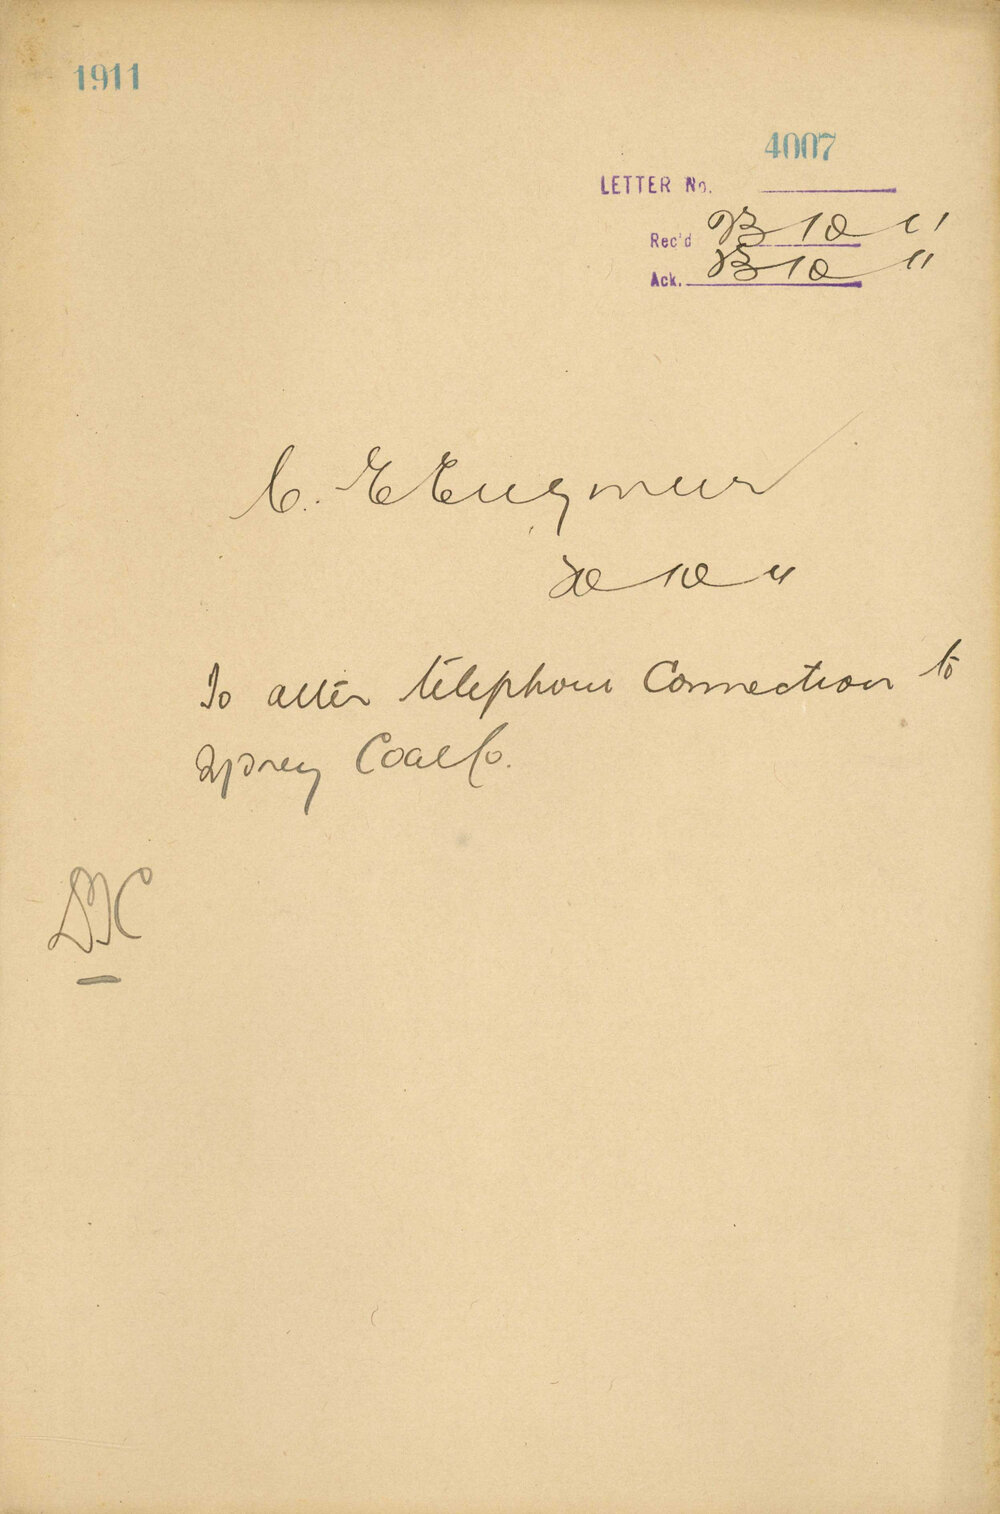 1911
4007
LETTER No.
Rec'd 23 10 11
Ack. 23 10 11
C. E. Engineer
20 10 11
To alter telephone Connection to
Coal Co.